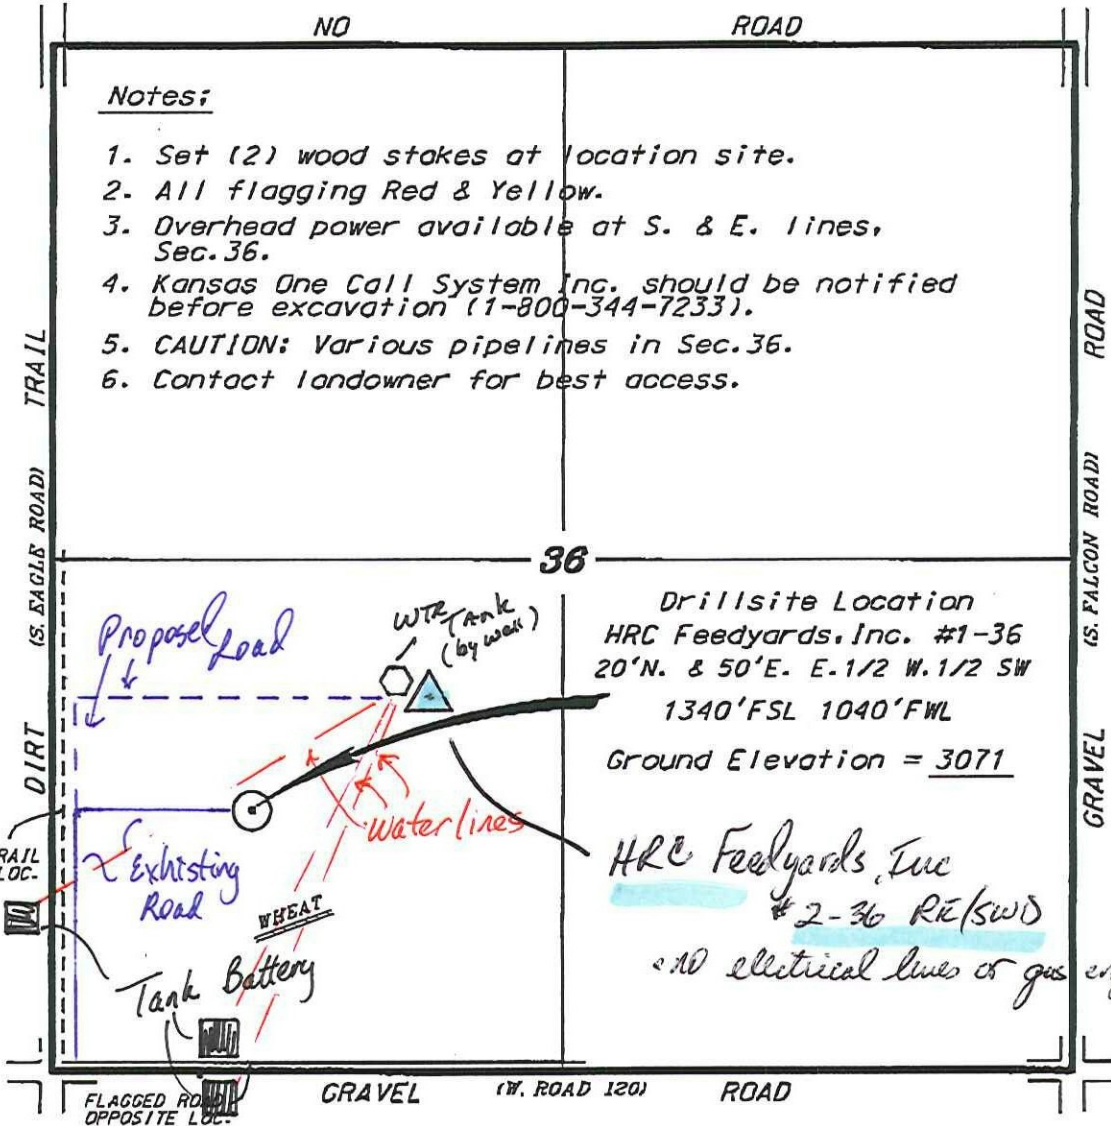 NO ROAD
Notes:
1. Set (2) wood stakes at location site.
2. All flagging Red & Yellow.
3. Overhead power available at S. & E. lines,
Sec.36.
4. Kansas One Call System Inc. should be notified
before excavation (1-800-344-7233).
5. CAUTION: Various pipelines in Sec.36.
6. Contact landowner for best access.
DIRT (S. EAGLE ROAD) TRAIL
GRAVEL (S. FALCON ROAD) ROAD
36
Proposel Road
WTR Tank
(by well)
Drillsite Location
HRC Feedyards, Inc. #1-36
20'N. & 50'E. E.1/2 W.1/2 SW
1340'FSL 1040'FWL
Ground Elevation = 3071
waterlines
RAIL
LOC.
Exhisting
Road
WHEAT
Tank Battery
HRC Feedyards, Inc
#2-36 RE/SWD
no electrical lines or gas
FLAGGED ROAD
OPPOSITE LOC.
GRAVEL (W. ROAD 120) ROAD